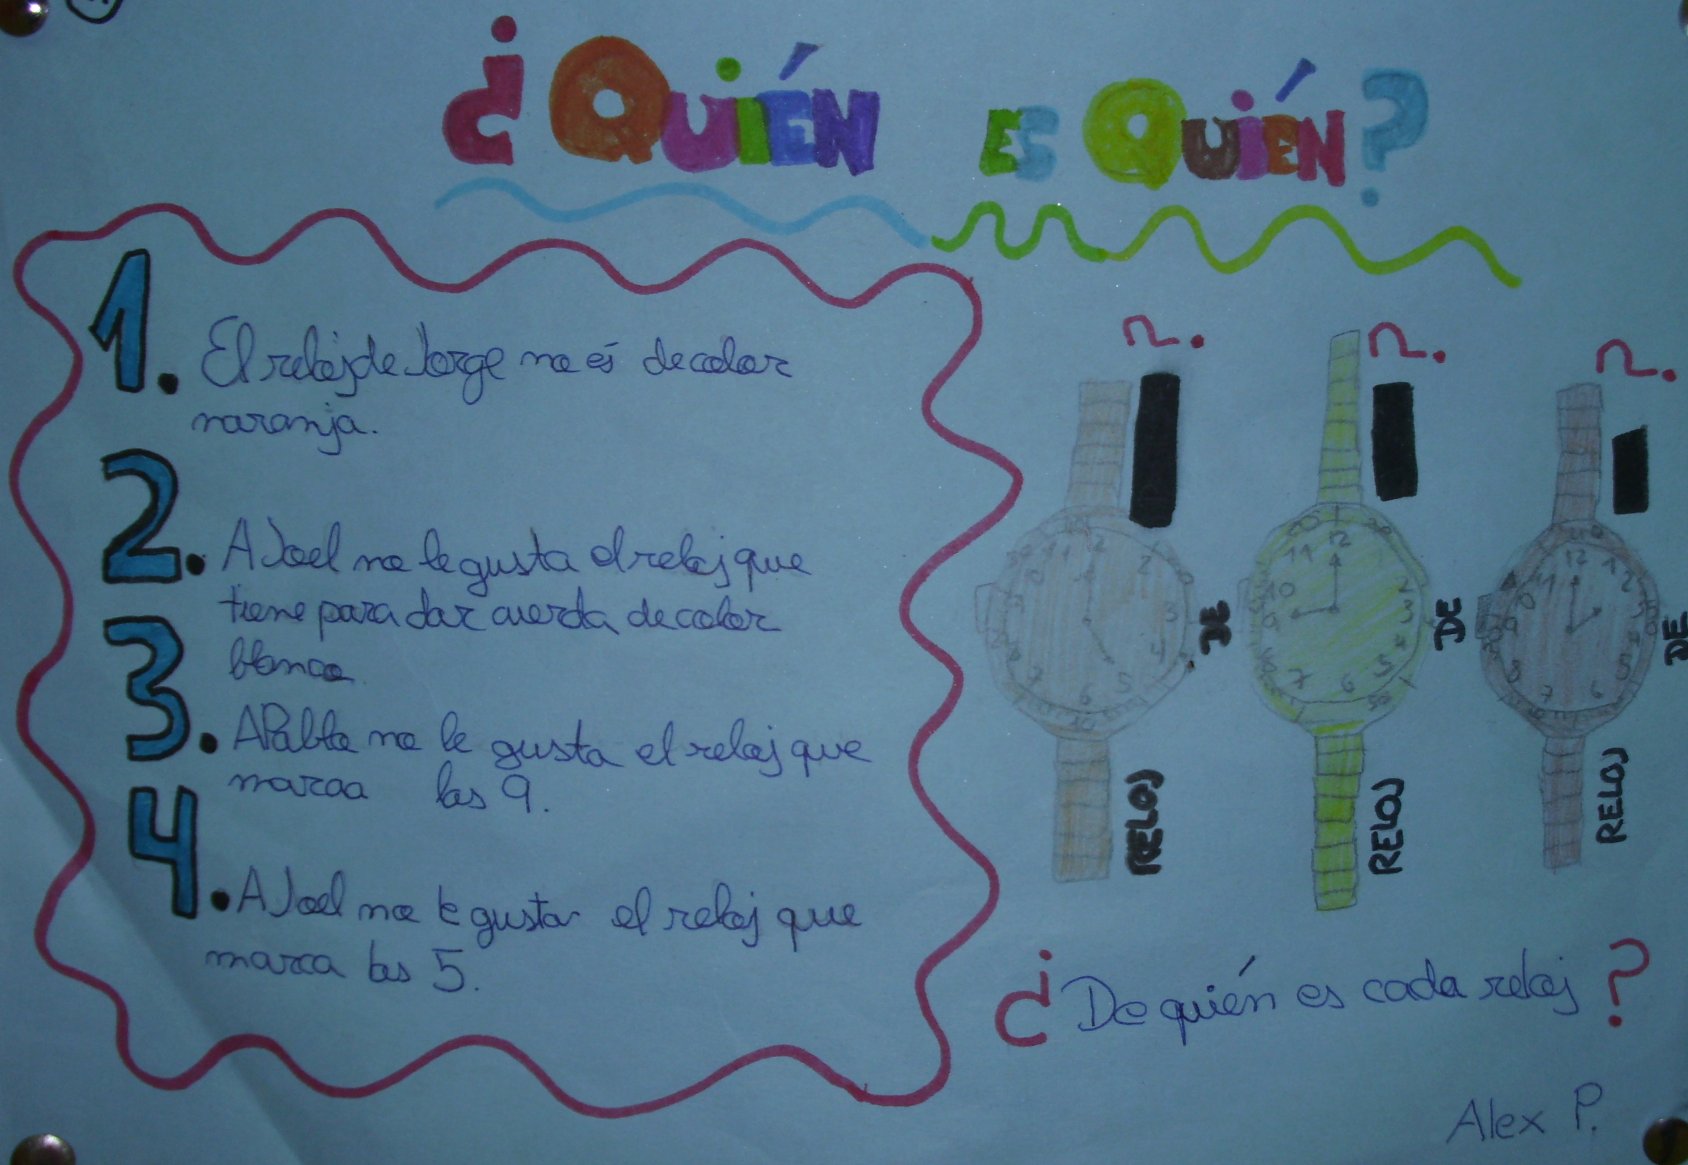 ¿QUIÉN ES QUIÉN?
1. El reloj de Jorge no es de color
naranja.
2. A Joel no le gusta el reloj que
tiene para dar cuerda de color
blanco
3. A Pablo no le gusta el reloj que
marca las 9.
4. A Joel no le gusta el reloj que
marca las 5.
RELOJ DE
RELOJ DE
RELOJ DE
¿De quién es cada reloj?
Alex P.